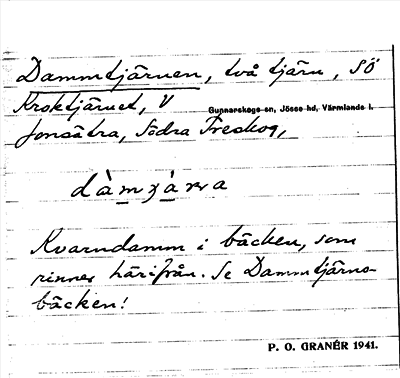 Dammtjärnen, två tjärn, SÖ
Kroktjärnet, V
Gunnarskogs sn, Jösse hd, Värmlands l.
Jonsätra, Södra Treskog,
Kvarndamm i bäcken, som
rinner härifrån. Se Dammtjärns-
bäcken!
P. O. GRANÉR 1941.